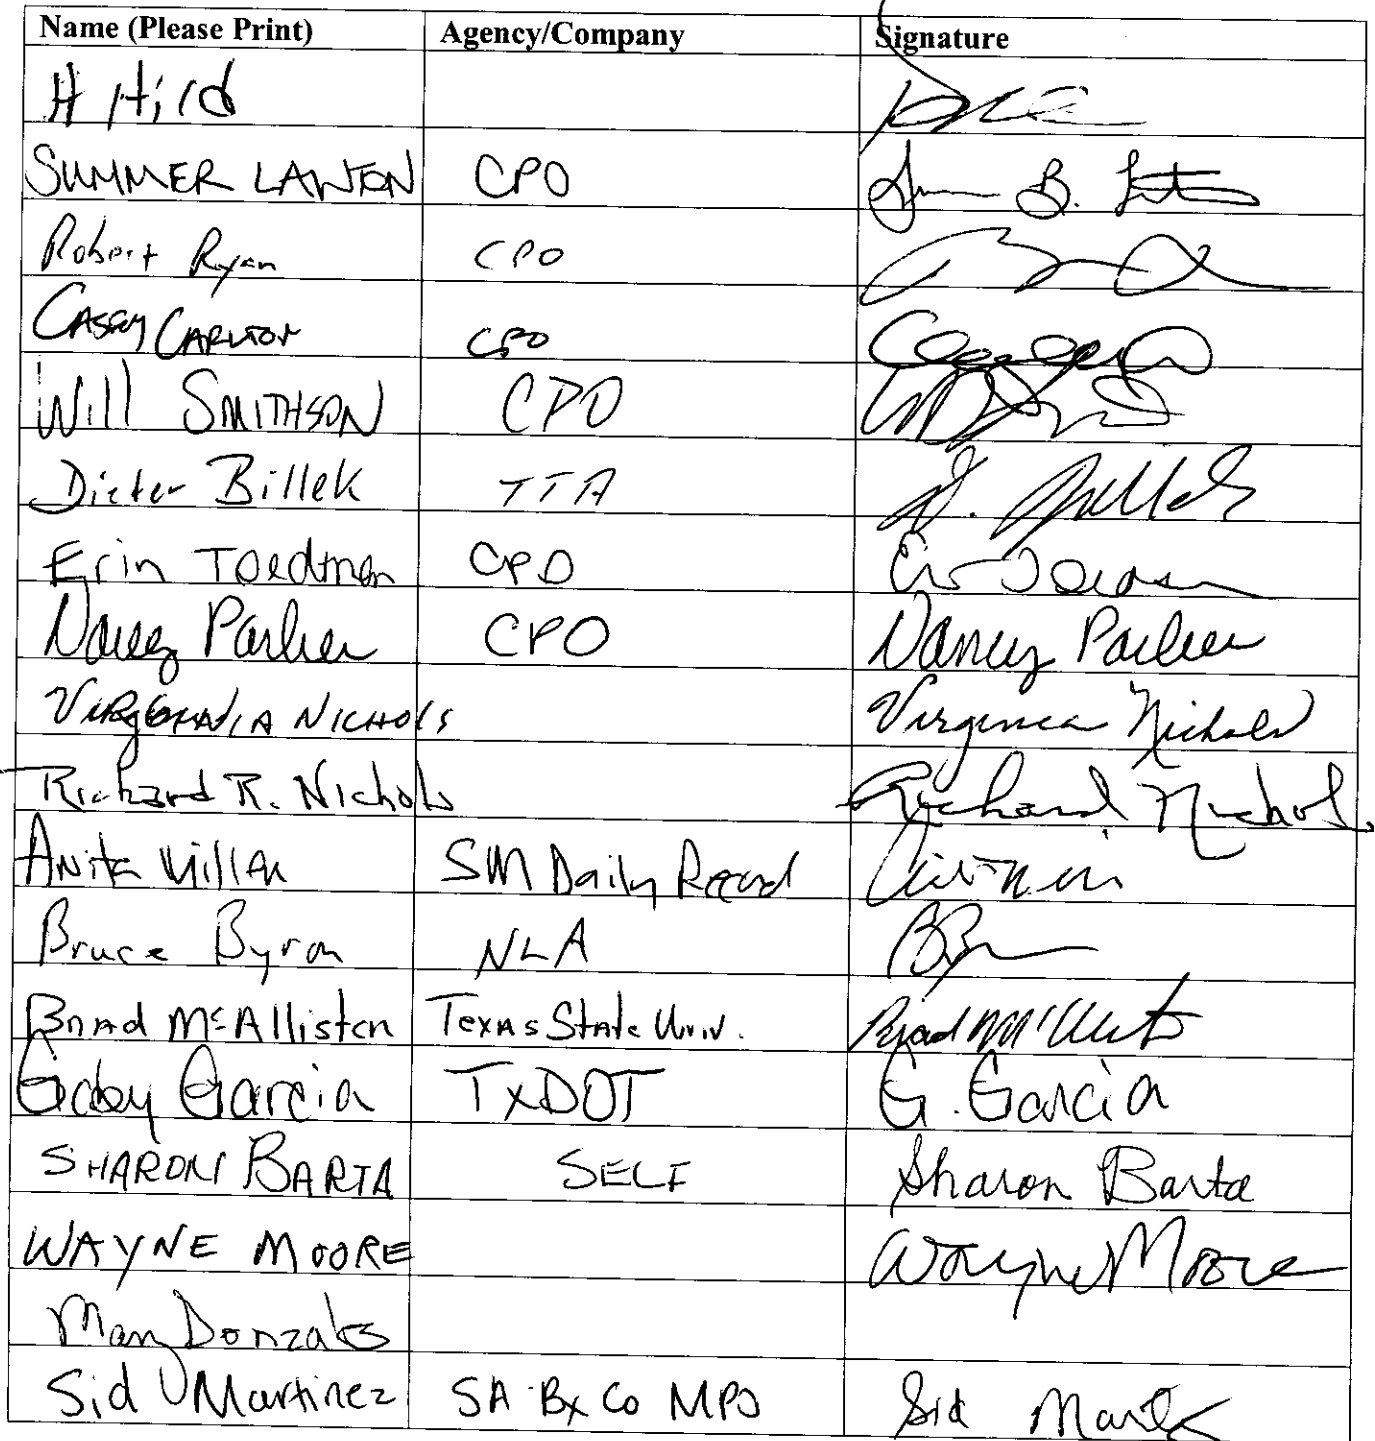 Name (Please Print) Agency/Company Signature
H Hild
SUMMER LAWTON CPO
Robert Ryan CPO
CASEY CARLTON CPO
Will SMITHSON CPO
Dieter Billek TTA D. Billek
Erin Toedtman CPO
Nancy Parker CPO Nancy Parker
VIRGINIA NICHOLS Virginia Nichols
Richard R. Nichols Richard Nichols
Anita Miller SM Daily Record
Bruce Byron NLA
Brad McAllister Texas State Univ. Brad McAllister
Gaby Garcia TxDOT G. Garcia
SHARON BARTA SELF Sharon Barta
WAYNE MOORE Wayne Moore
Sid Martinez SA-Bx Co MPO Sid